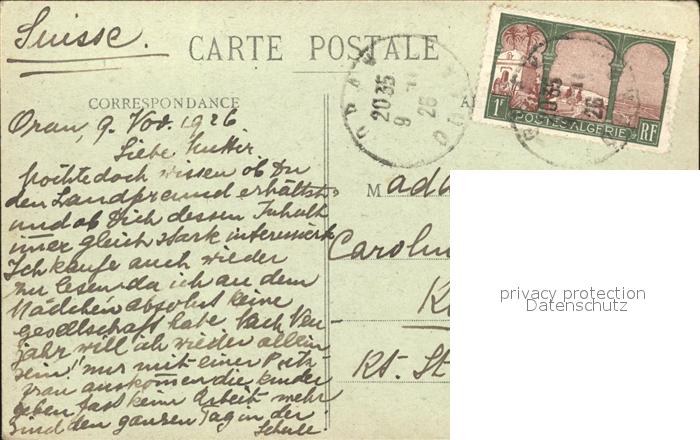 Suisse.
CARTE POSTALE
CORRESPONDANCE
Oran, 9. Nov. 1926
Liebe Mutti
Möchte doch wissen ob Du
den Landfreund erhältst
und ob Dich dessen Inhalt
immer gleich stark interessiert
Ich kaufe auch wieder
zu lesen da ich an dem
Mädchen absolut keine
gesellschaft habe. Nach Neu-
jahr will ich wieder allein
sein nur mit einer Putz-
frau auskommen die kinder
geben fast keine Arbeit mehr
sind den ganzen Tag in der
Schule.
ORAN
2035
9
26
1F POSTES ALGERIE RF
Mada
Carolin
Kt. St
privacy protection
Datenschutz